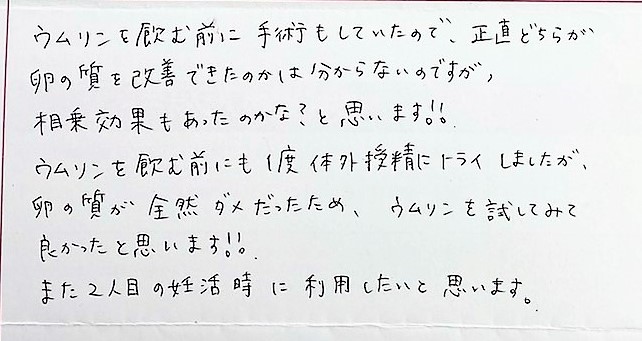 ウムリンを飲む前に手術もしていたので、正直どちらが
卵の質を改善できたのかは分からないのですが、
相乗効果もあったのかな?と思います!!
ウムリンを飲む前にも1度体外授精にトライしましたが、
卵の質が全然ダメだったため、ウムリンを試してみて
良かったと思います!!
また2人目の妊活時に利用したいと思います。